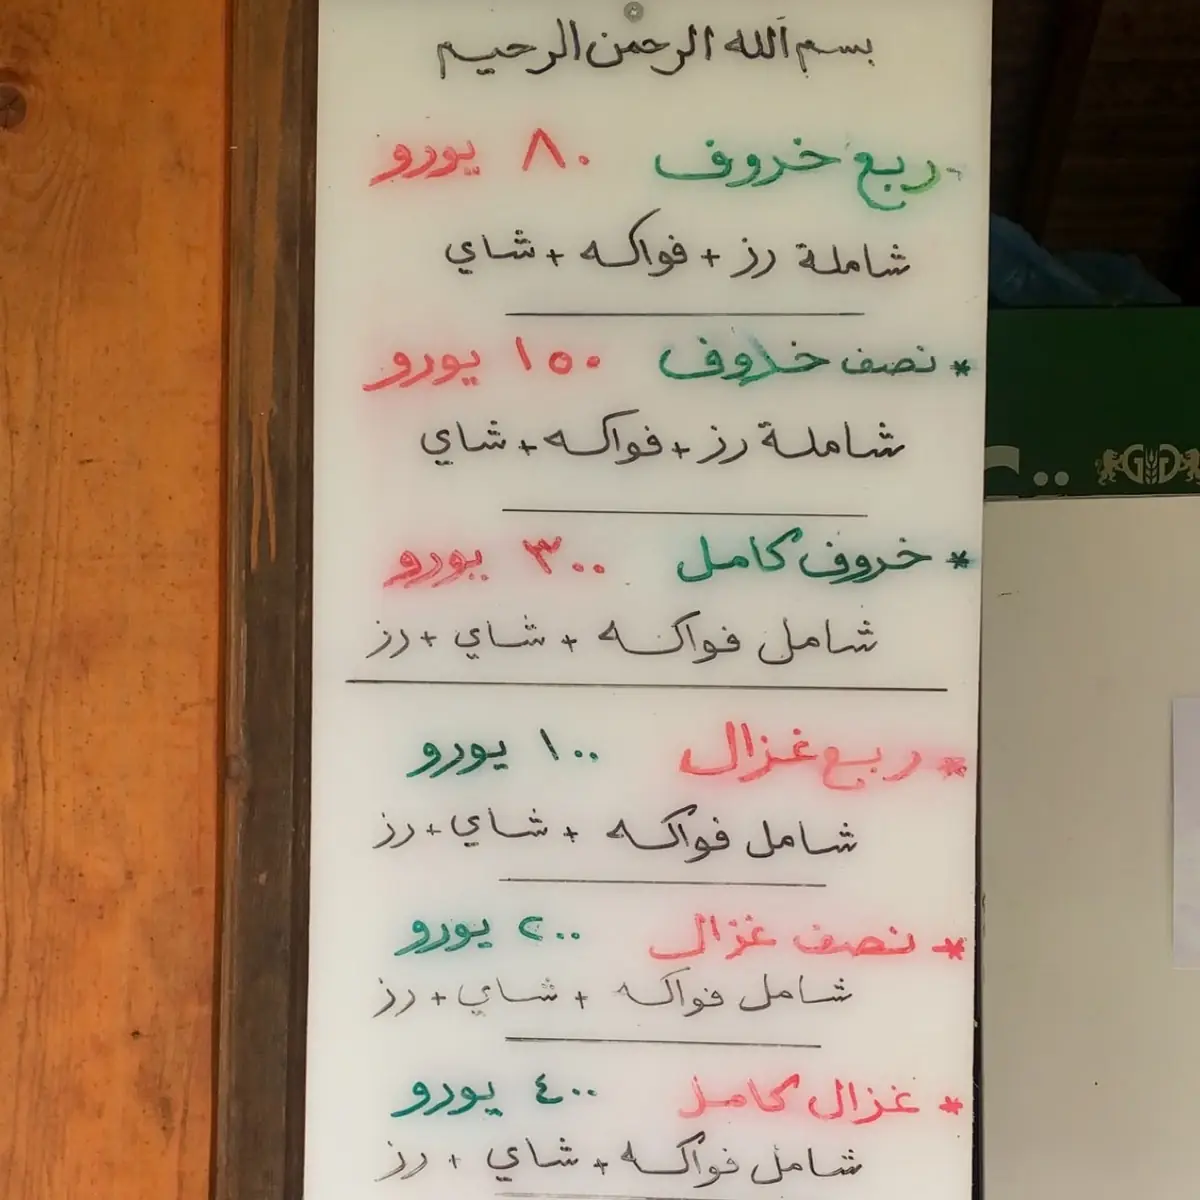 بسم الله الرحمن الرحيم
- ربع خروف ٨٠ يورو
شاملة رز + فواكه + شاي
* نصف خروف ١٥٠ يورو
شاملة رز + فواكه + شاي
* خروف كامل ٣٠٠ يورو
شامل فواكه + شاي + رز
* ربع غزال ١٠٠ يورو
شامل فواكه + شاي + رز
* نصف غزال ٢٠٠ يورو
شامل فواكه + شاي + رز
* غزال كامل ٤٠٠ يورو
شامل فواكه + شاي + رز